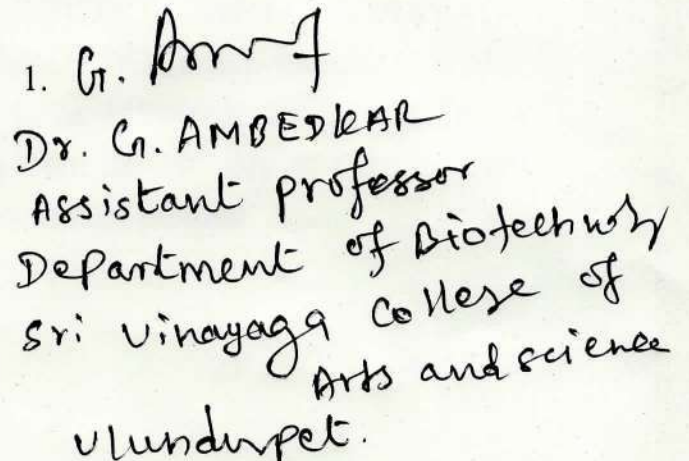 1. G.
Dr. G. AMBEDKAR
Assistant professor
Department of Biotechnology
Sri Vinayaga College of
Arts and science
Ulundurpet.